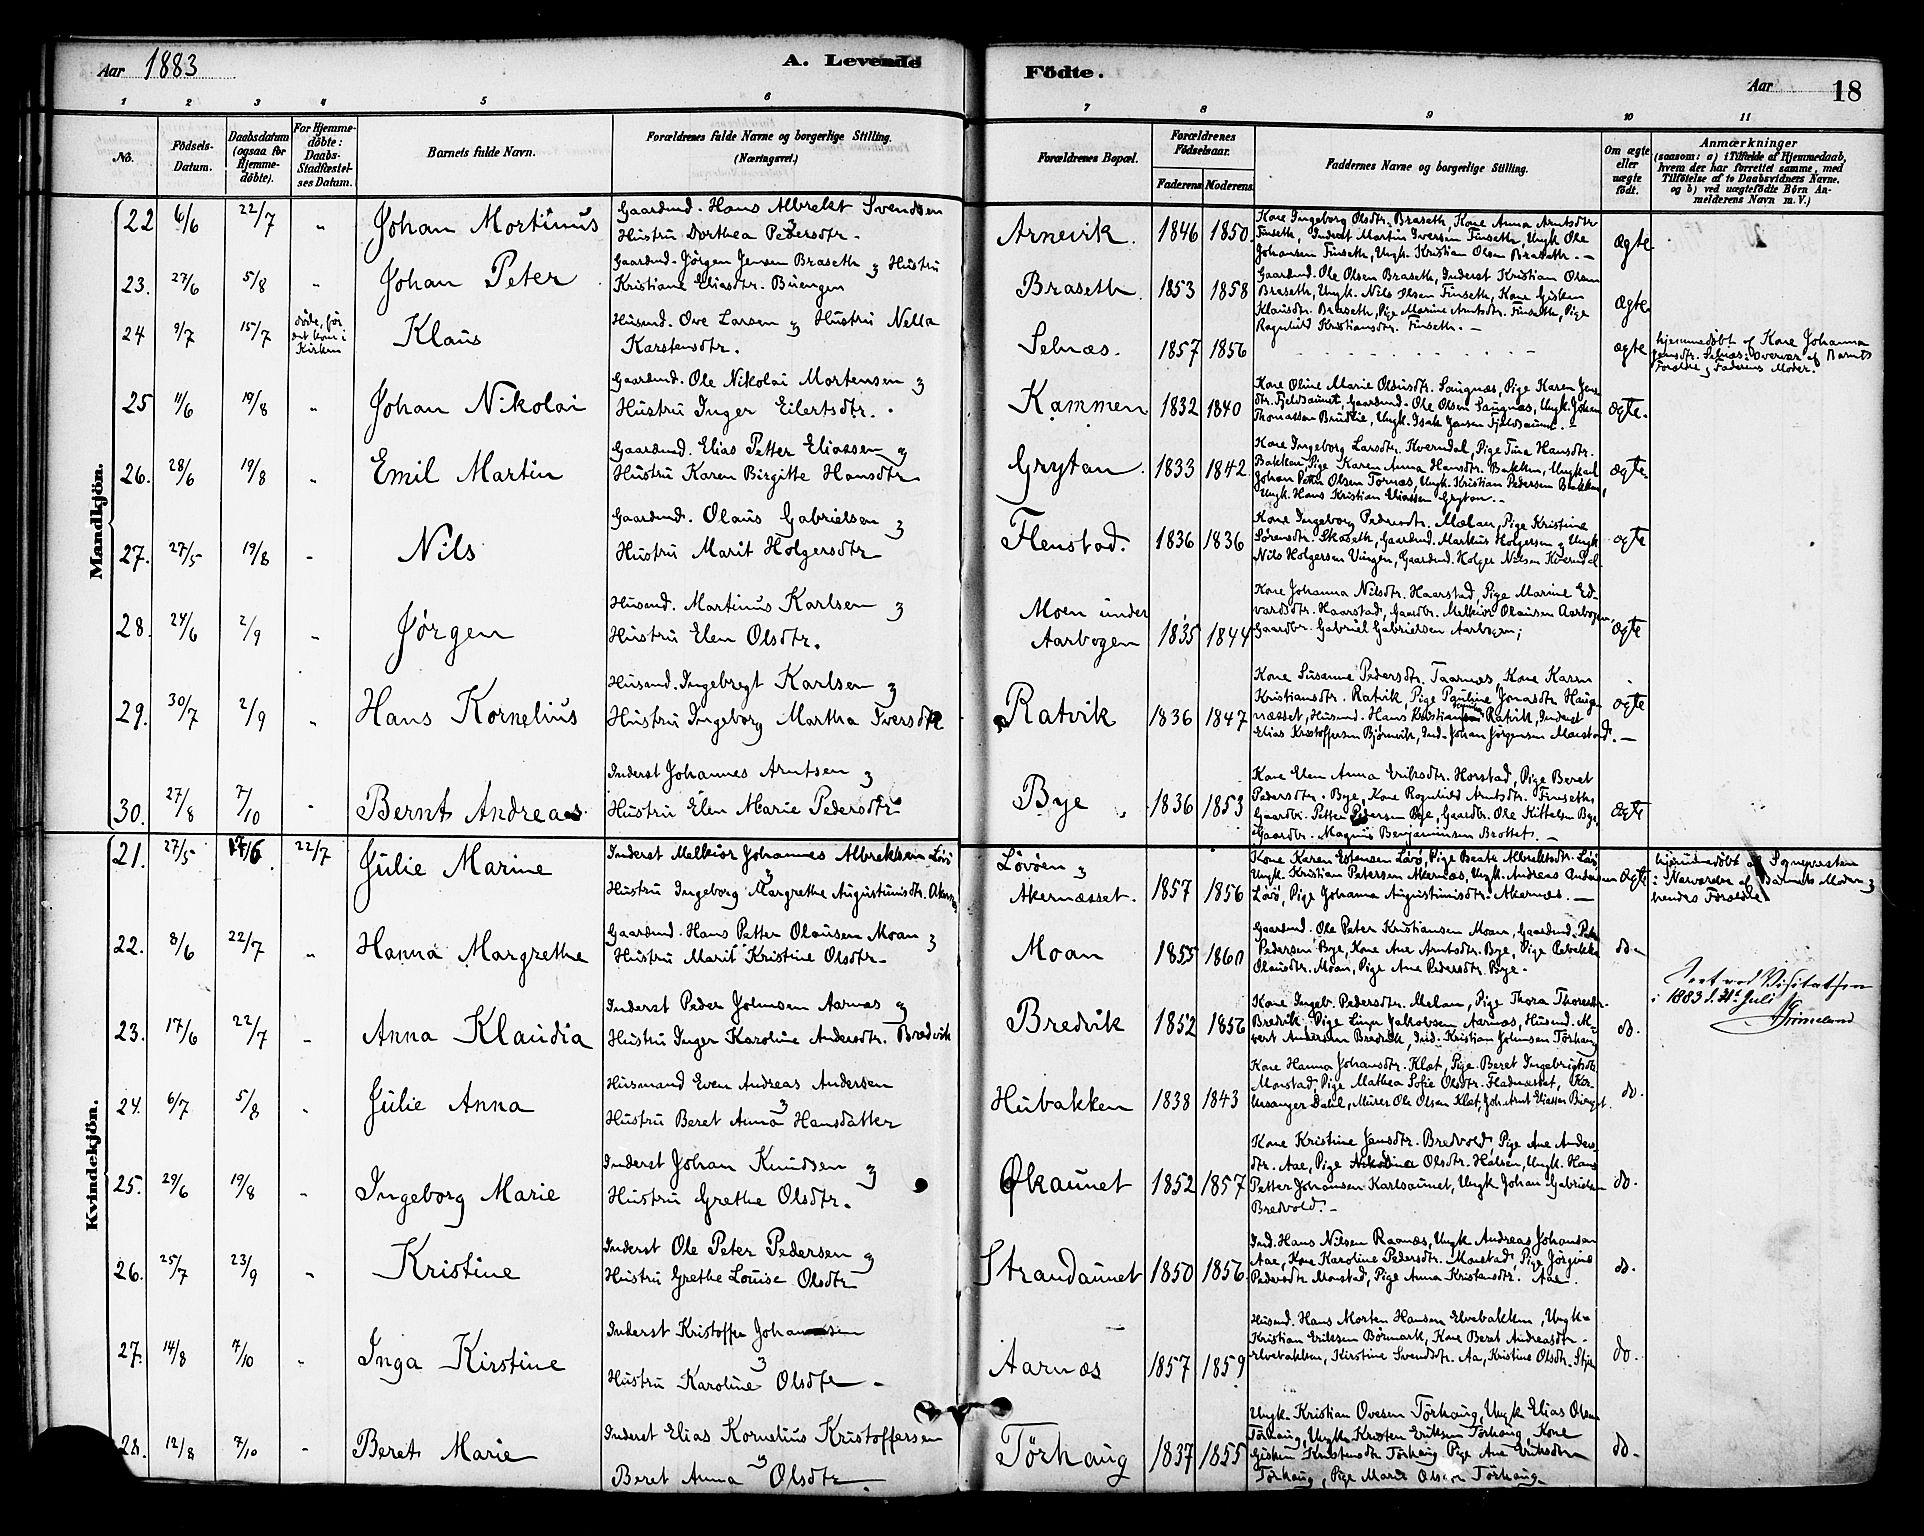 Aar 1883
A. Levende
Födte.
Aar
18
1 2 3 4 5 6 7 8 9 10 11
No.
Födsels-
Datum.
Daabsdatum
(ogsaa for
Hjemme-
döbte).
For Hjemme-
döbte:
Daabs-
Stadfæstel-
ses Datum.
Barnets fulde Navn.
Forældrenes fulde Navne og borgerlige Stilling.
(Næringsvei.)
Forældrenes Bopæl.
Forældrenes
Födselsaar.
Faderens Moderens
Faddernes Navne og borgerlige Stilling.
Om ægte
eller
uægte
födt.
Anmærkninger
(saasom: a) i Tilfælde af Hjemmedaab,
hvem der har forrettet samme, med
Tilföielse af to Daabsvidners Navne,
og b) ved uægtefödte Börn An-
melderens Navn m. V.)
Mandkjön.
22 6/6 22/7 " Johan Mortinus
Gaardmd. Hans Albrekt Svendsen &
Hustru Dorthea Pedersdtr.
Arnevik. 1846 1850
Kone Ingeborg Olsdtr. Braseth, Kone Anna Arntsdtr.
Finseth, Inderst Martin Iversen Finseth, Ungk. Ole
Johansen Finseth, Ungk. Kristian Olsen Braseth.
ægte
23. 27/6 5/8 " Johan Peter
Gaardmd. Jörgen Jensen Braseth & Hustru
Kristiane Eliasdtr. Buengen
Braseth. 1853 1858
Gaardmd. Ole Olsen Braseth, Inderst Kristian Olsen
Braseth, Ungk. Nils Olsen Finseth, Kone Gisken
Klausdtr. Braseth, Pige Marine Arntsdtr. Finseth, Pige
Ragnhild Kristiansdtr. Finseth.
ægte
24 9/7 15/7 döde, för
det kom i
Kirken
Klaus
Husmd. Ove Larsen & Hustru Nella
Karstensdtr.
Selnæs. 1857 1856
ægte
hjemmedöbt af Kone Johanna
Jensdtr. Selnæs i Overvær af Barnets
Forældre & Faderens Moder.
25 11/6 19/8 " Johan Nikolai
Gaardmd. Ole Nikolai Mortensen &
Hustru Inger Eilertsdtr.
Kammen 1832 1840
Kone Oline Marie Olausdtr. Saugnæs, Pige Karen Jens-
dtr. Fjeldsaunet, Gaardmd. Ole Olsen Saugnæs, Ungk. Johan
Thomassen Brudlie, Ungk. Isak Jensen Fjeldsaunet.
ægte.
26. 28/6 19/8 " Emil Martin
Gaardmd. Elias Petter Eliassen &
Hustru Karen Birgitte Hansdtr
Grytan. 1833 1842
Kone Ingeborg Larsdtr. Kverndal, Pige Tina Hansdtr.
Bakken, Pige Karen Anna Hansdtr. Bakken, Ungkarl
Johan Petter Olsen Tornæs, Ungk. Kristian Pedersen Bakken,
Ungk. Hans Kristian Eliassen Grytan.
ægte
27. 27/5 19/8 " Nils
Gaardmd. Olaus Gabrielsen &
Hustru Marit Holgersdtr
Flenstad. 1836 1836
Kone Ingeborg Pedersdtr. Melan, Pige Kristine
Sörensdtr. Skaseth, Gaardmd. Markus Holgersen & Ungk.
Nils Holgersen Vingen, Gaardmd. Holger Nilsen Kverndal.
ægte
28. 24/6 2/9 " Jörgen
Husmd. Martinus Karlsen &
Hustru Elen Olsdtr.
Moen under
Aarbogen 1835 1844
Kone Johanna Nilsdtr. Haarstad, Pige Marine Ed-
vardsdtr. Haarstad, Gaardbr. Melkior Olausen Aarbogen,
Gaardbr. Gabriel Gabrielsen Aarbogen;
ægte
29. 30/7 2/9 " Hans Kornelius
Husmd. Ingebregt Karlsen &
Hustru Ingeborg Martha Iversdtr
Ratvik 1836 1847
Kone Susanne Pedersdtr. Taarnæs, Kone Karen
Kristiansdtr. Ratvik, Pige Pauline Jonasdtr. Haugen-
næsset, Husmd. Hans Kristiansen Ratvik, Inderst
Elias Kristoffersen Bjørnevik, Ind. Johan Jörgensen Monstad.
ægte
30. 27/8 7/10 " Bernt Andreas
Inderst Johannes Arntsen &
Hustru Elen Marie Pedersdtr
Bye 1836 1853
Kone Elen Anna Eriksdtr. Horstad, Pige Beret
Pedersdtr. Bye, Kone Ragnhild Arntsdtr. Finseth,
Gaardbr. Petter Pedersen Bye, Gaardbr. Ole Kittelsen Bye,
Gaardbr. Magnus Benjaminsen Brottet.
ægte
Kvindekjön.
21. 27/5 17/6 22/7 Julie Marine
Inderst Melkior Johannes Albrektsen Lövö
&
Hustru Ingeborg Margrethe Augustinusdtr. Akernæs
Lövöen &
Akernæsset. 1857 1856
Kone Karen Estensen Lövö, Pige Beate Albrektsdtr. Lövö
Ungk. Kristian Petersen Akernæs, Ungk. Andreas Andersen
Lövö, Pige Johanna Augustinusdtr. Akernæs.
ægte
hjemmedöbt af Sognepresten
i Nærværelse af Barnets Moder &
hendes Forældre
22. 8/6 22/7 " Hanna Margrethe
Gaardmd. Hans Petter Olausen Moan &
Hustru Marit Kristine Olsdtr.
Moan 1855 1860
Gaardmd. Ole Peter Kristiansen Moan, Gaardmd. Peter
Pedersen Bye, Kone Ane Arntsdtr. Bye, Pige Rebekka
Olausdtr. Moan, Pige Ane Pedersdtr. Bye.
do
Seet ved Visitatsen
i 1883 d. 31te Juli
Grimelund
23. 17/6 22/7 " Anna Klaudia
Inderst Peder Johnsen Aarnæs &
Hustru Inger Karoline Andersdtr. Bredvik
Bredvik 1852 1856
Kone Ingeb. Pedersdtr. Melan, Pige Thora Thoresdtr.
Bredvik, Pige Lina Jakobsen Aarnæs, Husmd. A-
vert Andersen Bredvik, Ind. Kristian Johnsen Törhaug
do.
24. 6/7 5/8 " Julie Anna
Husmand Even Andreas Andersen
&
Hustru Beret Anna Hansdatter
Hubakken 1838 1843
Kone Hanna Johansdtr. Klæt, Pige Beret Ingebrigtsdtr.
Monstad, Pige Mathea Sofie Olsdtr. Fladnæsset, Kir-
kesanger Dahl, Murer Ole Olsen Klæt, Joh. Arnt Eliassen
do.
25. 29/6 19/8 " Ingeborg Marie
Inderst Johan Knudsen &
Hustru Grethe Olsdtr.
Økaunet 1852 1857
Kone Kristine Jensdtr. Bredvold, Pige Ane Anders-
dtr. Aae, Pige Nikoline Olsdtr. Halsen, Ungk. Hans
Petter Johansen Karlsaunet, Ungk Johan Gabrielsen
Bredvold.
do.
26. 25/7 23/9 " Kristine
Inderst Ole Peter Pedersen &
Hustru Grethe Louise Olsdtr
Strandaunet 1850 1856
Ind. Hans Nilsen Raanæs, Ungk Andreas Johansen
Aae, Kone Karoline Pedersdtr. Monstad, Pige Jörgine
Pedersdtr Monstad, Pige Anna Kristensdtr. Aae.
do.
27. 14/8 7/10 " Inga Kirstine
Inderst Kristoffer Johansen
&
Hustru Karoline Olsdtr
Aarnæs 1857 1859
Husmd. Hans Morten Hansen Elvebakken, Ungk.
Kristian Eriksen Börmark, Kone Beret Andreasdtr.
Elvebakken, Kirstine Svendsdtr. Aa, Kristine Olsdtr.
do.
28. 12/8 7/10 " Beret Marie
Inderst Elias Kornelius Kristoffersen
&
Beret Anna Olsdtr.
Törhaug 1837 1855
Ungk. Kristian Ovesen Törhaug, Ungk Elias Olsen
Törhaug, Ungk. Kristen Eriksen Törhaug, Kone
Gisken Kristensdtr Törhaug Pige Ane Eriksdtr
Törhaug, Pige Marie Olsen Törhaug
do.